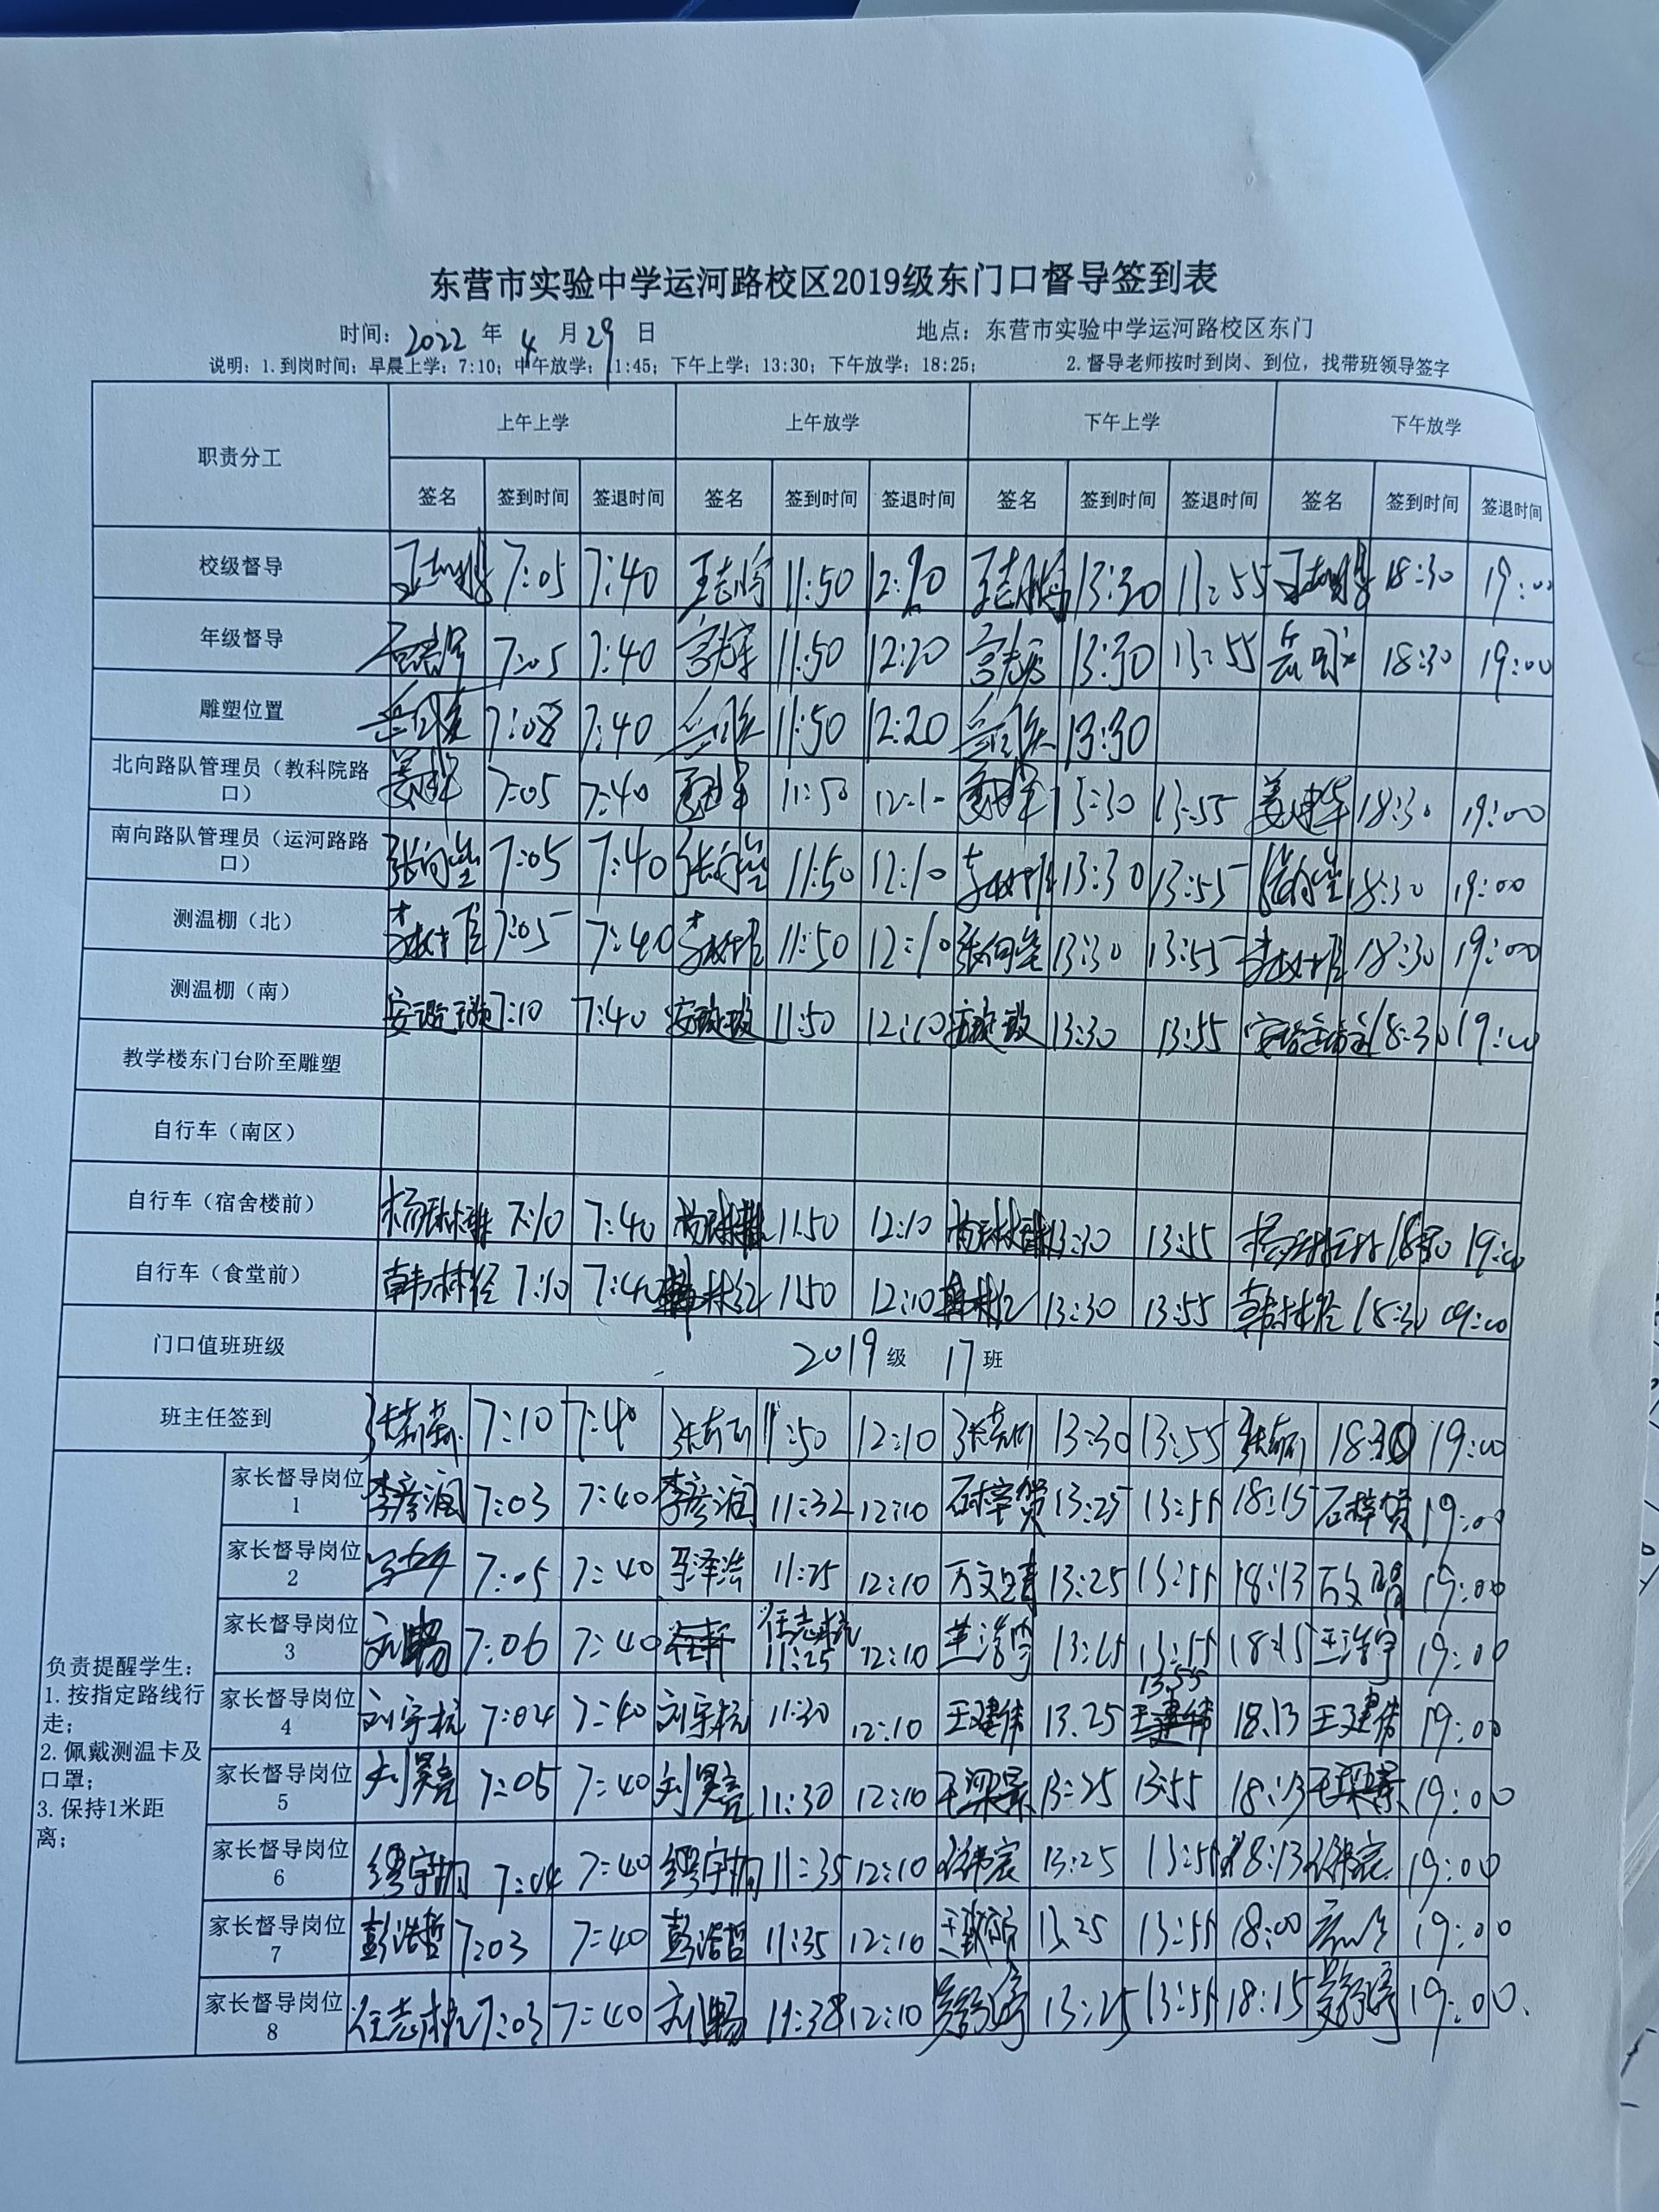 东营市实验中学运河路校区2019级东门口督导签到表
时间: 2022 年 4 月 29 日 地点: 东营市实验中学运河路校区东门
说明: 1.到岗时间: 早晨上学: 7:10; 中午放学: 11:45; 下午上学: 13:30; 下午放学: 18:25; 2.督导老师按时到岗、到位, 找带班领导签字
职责分工 上午上学 上午放学 下午上学 下午放学
签名 签到时间 签退时间 签名 签到时间 签退时间 签名 签到时间 签退时间 签名 签到时间 签退时间
校级督导 7:05 7:40 王志鹏 11:50 王志鹏 13:30 13:55 18:30 19:00
年级督导 7:05 7:40 11:50 12:20 13:30 13:55 18:30 19:00
雕塑位置 7:08 7:40 11:50 12:20 13:30
北向路队管理员（教科院路口） 姜建华 7:05 7:40 11:50 12:10 13:30 13:55 姜建华 18:30 19:00
南向路队管理员（运河路路口） 7:05 7:40 11:50 12:10 13:30 13:55 18:30 19:00
测温棚（北） 7:05 7:40 11:50 12:10 13:30 13:55 18:30 19:00
测温棚（南） 7:10 7:40 11:50 12:10 13:30 13:55 18:30 19:00
教学楼东门台阶至雕塑
自行车（南区）
自行车（宿舍楼前） 7:10 7:40 11:50 12:10 13:30 13:55 18:30 19:00
自行车（食堂前） 7:10 7:40 1150 12:10 13:30 13:55 18:30 19:00
门口值班班级 2019级 17班
班主任签到 张莉莉 7:10 7:40 11:50 12:10 13:30 13:55 18:30 19:00
负责提醒学生:
1.按指定路线行走;
2.佩戴测温卡及口罩;
3.保持1米距离;
家长督导岗位1 李彦润 7:03 7:40 李彦润 11:32 12:10 石梓贺 13:25 13:55 18:15 石梓贺 19:00
家长督导岗位2 7:05 7:40 马泽浩 11:25 12:10 13:25 13:55 18:13 19:00
家长督导岗位3 刘畅 7:06 7:40 任志杭 11:25 12:10 13:25 13:55 18:15 王浩宇 19:00
家长督导岗位4 刘宇杭 7:04 7:40 刘宇杭 11:30 12:10 王建伟 13.25 13.55 18.13 王建伟 19:00
家长督导岗位5 刘昊亮 7:05 7:40 刘昊亮 11:30 12:10 13:25 13:55 18:13 19:00
家长督导岗位6 7:04 7:40 11:35 12:10 13:25 13:55 18:13 19:00
家长督导岗位7 彭浩哲 7:03 7:40 彭浩哲 11:35 12:10 13:25 13:55 18:00 19:00
家长督导岗位8 任志杭 7:03 7:40 刘畅 11:38 12:10 13:25 13:55 18:15 19:00